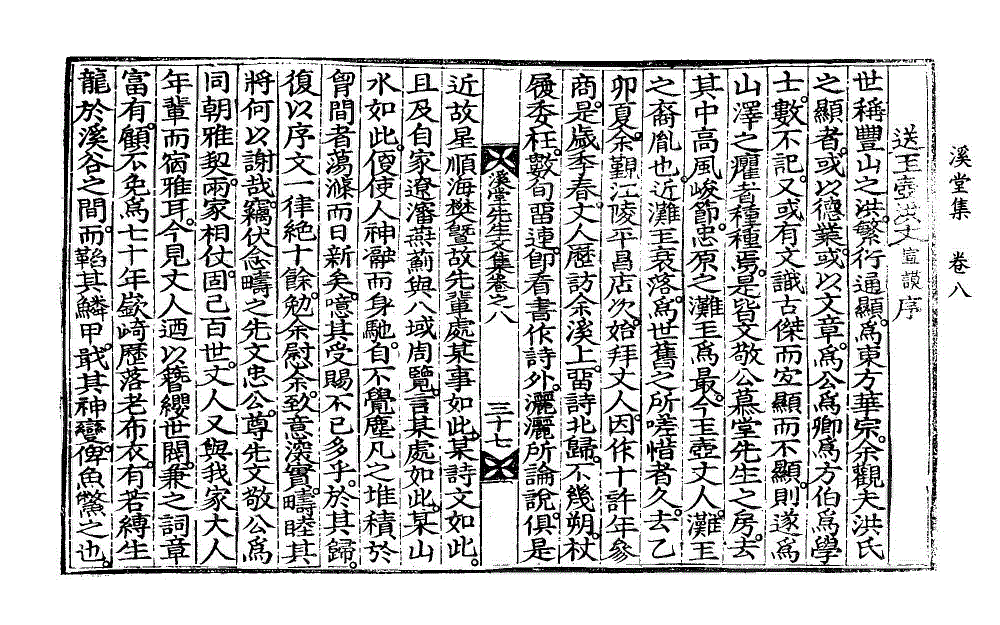 溪堂集　卷八
送玉壺洪丈宣謨序
世稱豐山之洪。繁衍通顯。爲東方華宗。余觀夫洪氏
之顯者。或以德業。或以文章。爲公爲卿爲方伯爲學
士。數不記。又或有文識古傑而宜顯而不顯。則遂爲
山澤之癯者種種焉。是皆文敬公慕堂先生之房。去
其中高風峻節。忠原之灘王爲最。今玉壺丈人。灘王
之裔胤也。近灘王衰落。爲世舊之所嗟惜者久。去乙
卯夏。余覲江陵平昌店次。始拜丈人。因作十許年參
商。是歲季春。丈人歷訪余溪上。留詩北歸。不幾朔。杖
屨委枉。數旬留連。卽看書作詩外。灑灑所論說。俱是
溪堂先生文集卷之八　三十七
近故星順海樊曁故先輩處某事如此。某詩文如此。
且及自家遼瀋燕薊與八域周覽。言某處如此。某山
水如此。便使人神融而身馳。自不覺塵凡之堆積於
胷間者蕩滌而日新矣。噫。其受賜不已多乎。於其歸。
復以序文一律絕十餘。勉余慰余。致意深實。疇睦其
將何以謝哉。竊伏念疇之先文忠公。尊先文敬公。爲
同朝雅契。兩家相仗。固已百世。丈人又與我家大人
年輩而宿雅耳。今見丈人迺以簪纓世閥。兼之詞章
富有。顧不免爲七十年嶔崎歷落老布衣。有若縛生
龍於溪谷之間。而韜其鱗甲。戢其神變。俾魚鱉之也。